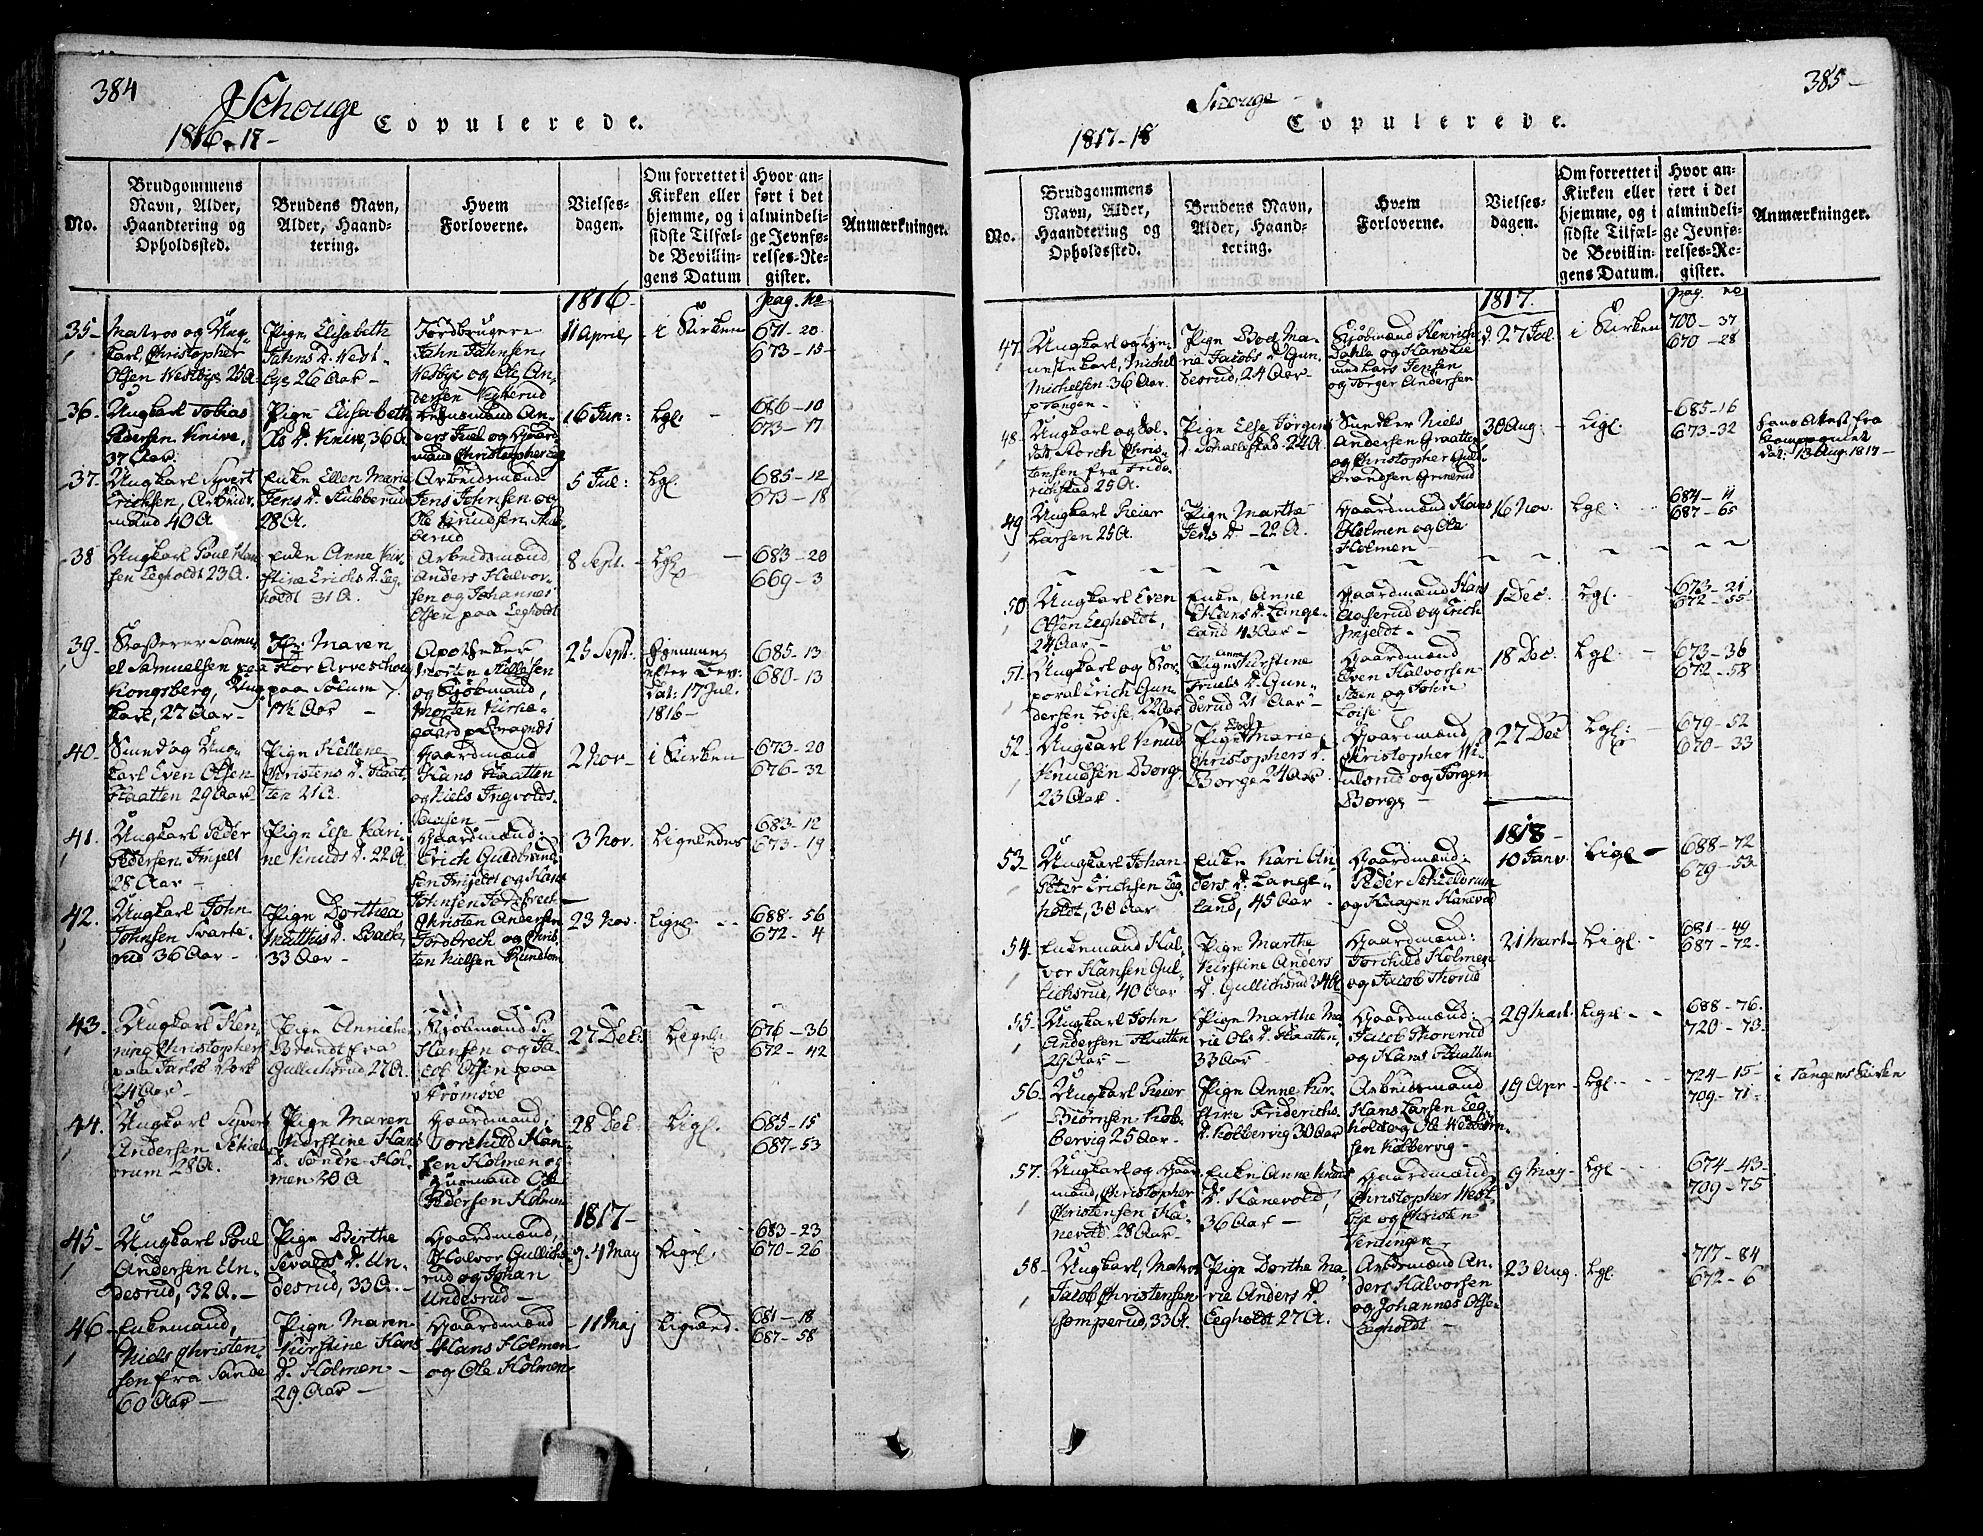 384
Schouge
Copulerede.
1816-17-
No.
Brudgommens
Navn, Alder,
Haandtering og
Opholdssted.
Brudens Navn,
Alder, Haand-
tering.
Hvem
Forloverne.
Vielses-
dagen.
Om forrettet i
Kirken eller
hjemme, og i
sidste Tilfæl-
de Bevillin-
gens Datum
Hvor an-
ført i det
almindeli-
ge Jevnfø-
relses-Re-
gister.
Anmærkninger.
1816-
pag. No
35-
Matros og Ung-
karl, Christopher
Olsen Westbye 25 A
Pige Elisabeth
Jahns D. West-
bye 26 Aar -
Jordbrugere
John Johnsen
Wesbye og Ole An-
dersen
11 April,
i Kirken
671-20
673-15-
36-
Ungkarl Tobias
Pedersen Knive,
37 Aar
Pige Elisabeth
Ols D. Knive, 36 A
An-
ders Juel og Gaard-
mand Christopher
16 Jun:
Lgl. -
686-10
673-17
37-
Ungkarl Syvert
Erichsen, Arbeids-
mand 40 A
Enke Ellen Marie
Jens D. Stubberud
28 A.
Arbeidsmænd
Jens Johnsen og
Ole Knudsen Stub-
berud
5 Jul:
Lgl.
685-12
673-18
38
Ungkarl Poul Han-
sen Eegholdt 23 A.
Enke Anne Kir-
stine Erichs D. Eeg-
holdt 31 A.
Arbeidsmænd
Anders Halvor-
sen og Johannes
Olsen paa Eegholdt
8 Sept.
Lgl -
683-20
669-3
39-
Samu-
el Samuelsen paa
Kongsberg, Ung-
karl, 27 Aar -
Jfr. Maren
paa Solum
17½ Aar -
Apotheker
Morten
og Kjøbmand,
Morten Kirke-
gaard p. Bragnæs
25 Sept.
hjemme,
efter Bev:
Dat: 17 Jul.
1816-
685-13
680-13
40-
Smed og Ung-
karl Even Olsen
Flaatten 29 Aar
Pige Hellene
Kristens D. Flaat-
ten 21 A.
Gaardmænd
Hans Flaatten
og Niels Ingvolds-
2 Nov-
i Kirken
673-20
676-32
41.
Ungkarl Peder
Pedersen Imjelt
28 Aar -
Pige Else Kari-
ne Knuds D. 22 A
Gaardmænd:
Erich Guldbrand-
sen Imjeldt og Hans
Johnsen Jordbrech
3 Nov.
Ligeledes
683-12
673-19
42.
Ungkarl John
Johnsen Svarte-
rud 36 Aar -
Pige Dorthea
Matthis D. Bache,
33 Aar -
Christen Andersen
Jordbrech og Chris-
ten Nielsen Rundtom
23 Nov.
Ligel. --
688-56
672-4
43.
Ungkarl Hen-
ning Christophers
paa Jarlsb Værk
24 Aar -
Pige Annichen
Brandt fra
Gullichsrud 27 A.
Kjøbmænd P.
Hansen og Ja-
cob Olsen paa
Strømsøe
27 Dec:
Ligel:
676-36
672-42
44.
Ungkarl Syvert
Andersen Skiel-
brum 28 A.
Pige Maren
Kirstine Hans
D. Søndre Hol-
men 20 A
Gaardmænd:
Torchild Han-
sen Holmen og
Huusmand Ole
Pedersen Holmen
28 Dec:
Ligl.
685-15
687-53
1817-
45-
Ungkarl Poul
Andersen Un-
desrud, 32 A. -
Pige Birthe
Sevalds D. Un-
desrud, 33 A. -
Gaardmænd,
Halvor Gullichs-
rud og Johan
Undesrud -
d. 4 May
Ligel.
683-23
670-26
46-
Enkemand,
Niels Christen-
sen fra Sande
60 Aar -
Pige Maren
Kirstine Hans
D. Holmen -
29 Aar -
Gaardmænd
Hans Holmen
og Ole Holmen
11 Maj
Ligeled.
681-18
687-58
385-
Schouge -
Copulerede.
1817-18
No.
Brudgommens
Navn, Alder,
Haandtering og
Opholdssted.
Brudens Navn,
Alder, Haand-
tering.
Hvem
Forloverne.
Vielses-
dagen.
Om forrettet i
Kirken eller
hjemme, og i
sidste Tilfæl-
de Bevillin-
gens Datum.
Hvor an-
ført i det
almindeli-
ge Jevnfø-
relses-Re-
gister.
Anmærkninger.
1817.
pag. No
47.
Ungkarl og tje-
nestekarl, Michel
Michelsen 36 Aar
p Tangen -
Pige Boel Ma-
rie Jacobs D. Gun-
desrud, 24 Aar -
Kjøbmænd Henrich
Dahle og Hans Lie
und Lars Jensen
og Torger Andersen
d. 27 Jul.
i Kirken
700-37
670-28
48-
Ungkarl og Sol-
dat Storch Chris-
tensen fra Fride-
richstad 25 A.
Pige Else Jørgens
D. Schallestad 24 A
Smeker Niels
Andersen Graatten
og Christopher Guld-
brandsen Grinerud
30 Aug:
Ligl.
685-16
673-32
hans Atest fra
Kompagniet
Dat: 13 Aug. 1817-
49
Ungkarl Peier
Larsen 25 A.
Pige Marthe
Jens D. - 22 A.
Gaardmænd Hans
Holmen og Ole
Holmen -
16 Nov.
Lgl:
684-11
687-65
50-
Ungkarl Even
Olsen Eegholdt,
24 Aar -
Enke, Anne
Hans D. Lange-
land 43 Aar -
Gaardmænd Hans
Aaserud og Erich
Imjeldt -
1 Dec.
Lgl.
673-21
672-55
51.
Ungkarl og Kor-
poral Erich Gun-
dersen Loise, 22 Aar
Pige Anne Kirstine
Truels D. Gun-
derud 21 Aar -
Gaardmænd
Even Halvorsen
Steen og John
Loise -
18 Dec.
Lgl.
673-36
672-58
52.
Ungkarl Knud
Knudsen Borge
23 Aar.
Pige Marie
Christophers D.
Borge 24 Aar
Gaardmænd
Christopher Wi-
tulsrud og Jørgen
Borge -
27 Dec
Lgl:
679-52
670-33
1818-
53.
Ungkarl Johan
Peter Erichsen Eeg-
holdt, 30 Aar
Enke Kari An-
ders D. Lange-
land, 45 Aar -
Gaardmænd:
Peder Schielbrum
og Haagen Hanevold
10 Janv.
Ligl -
688-72
679-53
54.
Enkemand Hal-
vor Hansen Gul-
lichsrud, 40 Aar
Pige Marthe
Kirstine Anders
D. Gullichsrud 34 A
Gaardmænd:
Torchild Holmen
og Jacob Thorud
21 Mart-
Ligl. -
681-49
687-72-
55-
Ungkarl John
Andersen Flaatten
29 Aar -
Pige Marthe Ma-
rie Ols D. Flaatten,
33 Aar -
Gaardmænd:
Jacob Thorerud
og Hans Flaatten
29 Mart.
Ligel - -
688-76.
720-73-
56-
Ungkarl Peier
Biørnsen Kob-
bervig 25 Aar -
Pige Anne Kir-
stine Friderichs
D. Kobbervig 30 Aar
Arbeidsmænd
Hans Larsen Eeg-
holdt og Ole
sen Kobbervig -
19 Apr
Lgl.
724-15-
709-71-
i Tangens Kirken
57-
Ungkarl og Gaard-
mand, Christopher
Christensen Ha-
nevold 28 Aar -
Enke Anne Knuds
D. Hanevold,
36 Aar -
Gaardmænd
Christopher West-
bye og Christen
Ventingen -
9 May-
Lgl
674-43-
709-75
58-
Ungkarl, Matros
Jacob Christensen
Gomperud, 33 A.
Pige Dorthe Ma-
rie Anders D.
Eegholdt 27 A.
Arbsmænd An-
ders Halvorsen
og Johannes Olsen
Eegholdt -
23 Aug.
Lgl.
717-84
672-6